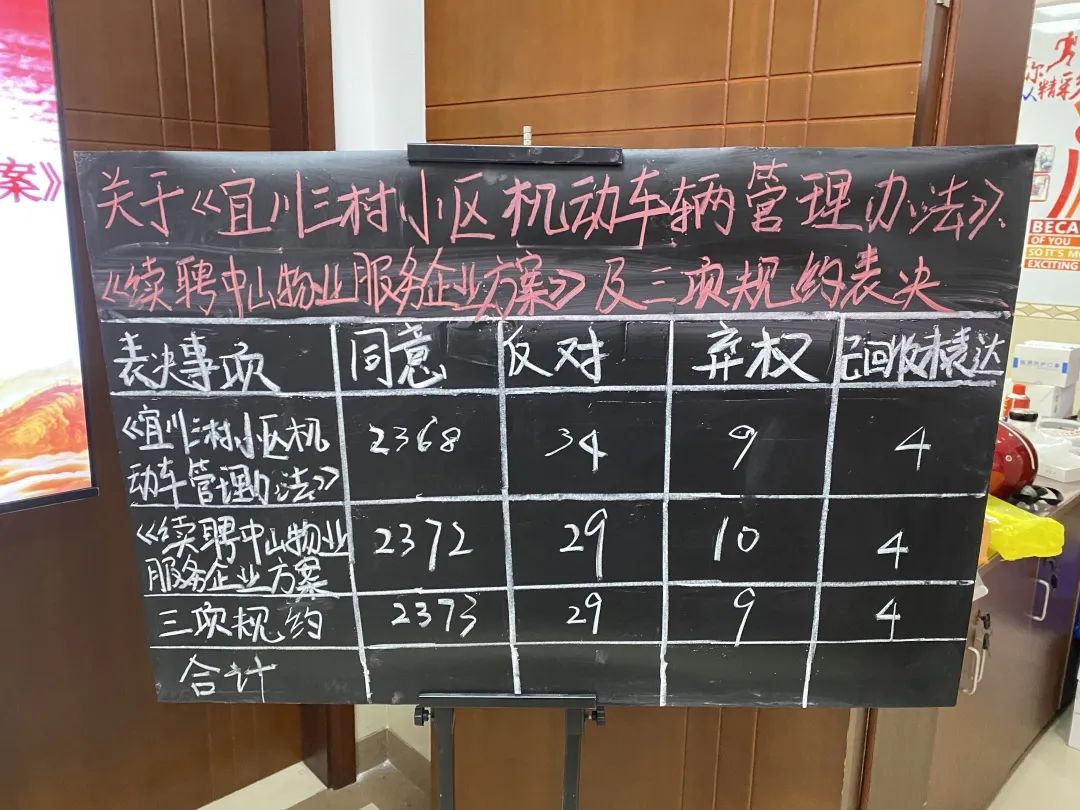 案》
关于《宜川三村小区机动车辆管理办法》、
《续聘中山物业服务企业方案》及三项规约表决
表决事项 同意 反对 弃权 已回收未表达
《宜川三村小区机
动车管理办法》 2368 34 9 4
《续聘中山物业
服务企业方案 2372 29 10 4
三项规约 2373 29 9 4
合计
你
人精彩
BECA
OF YOU
SO IT'S MO
EXCITING